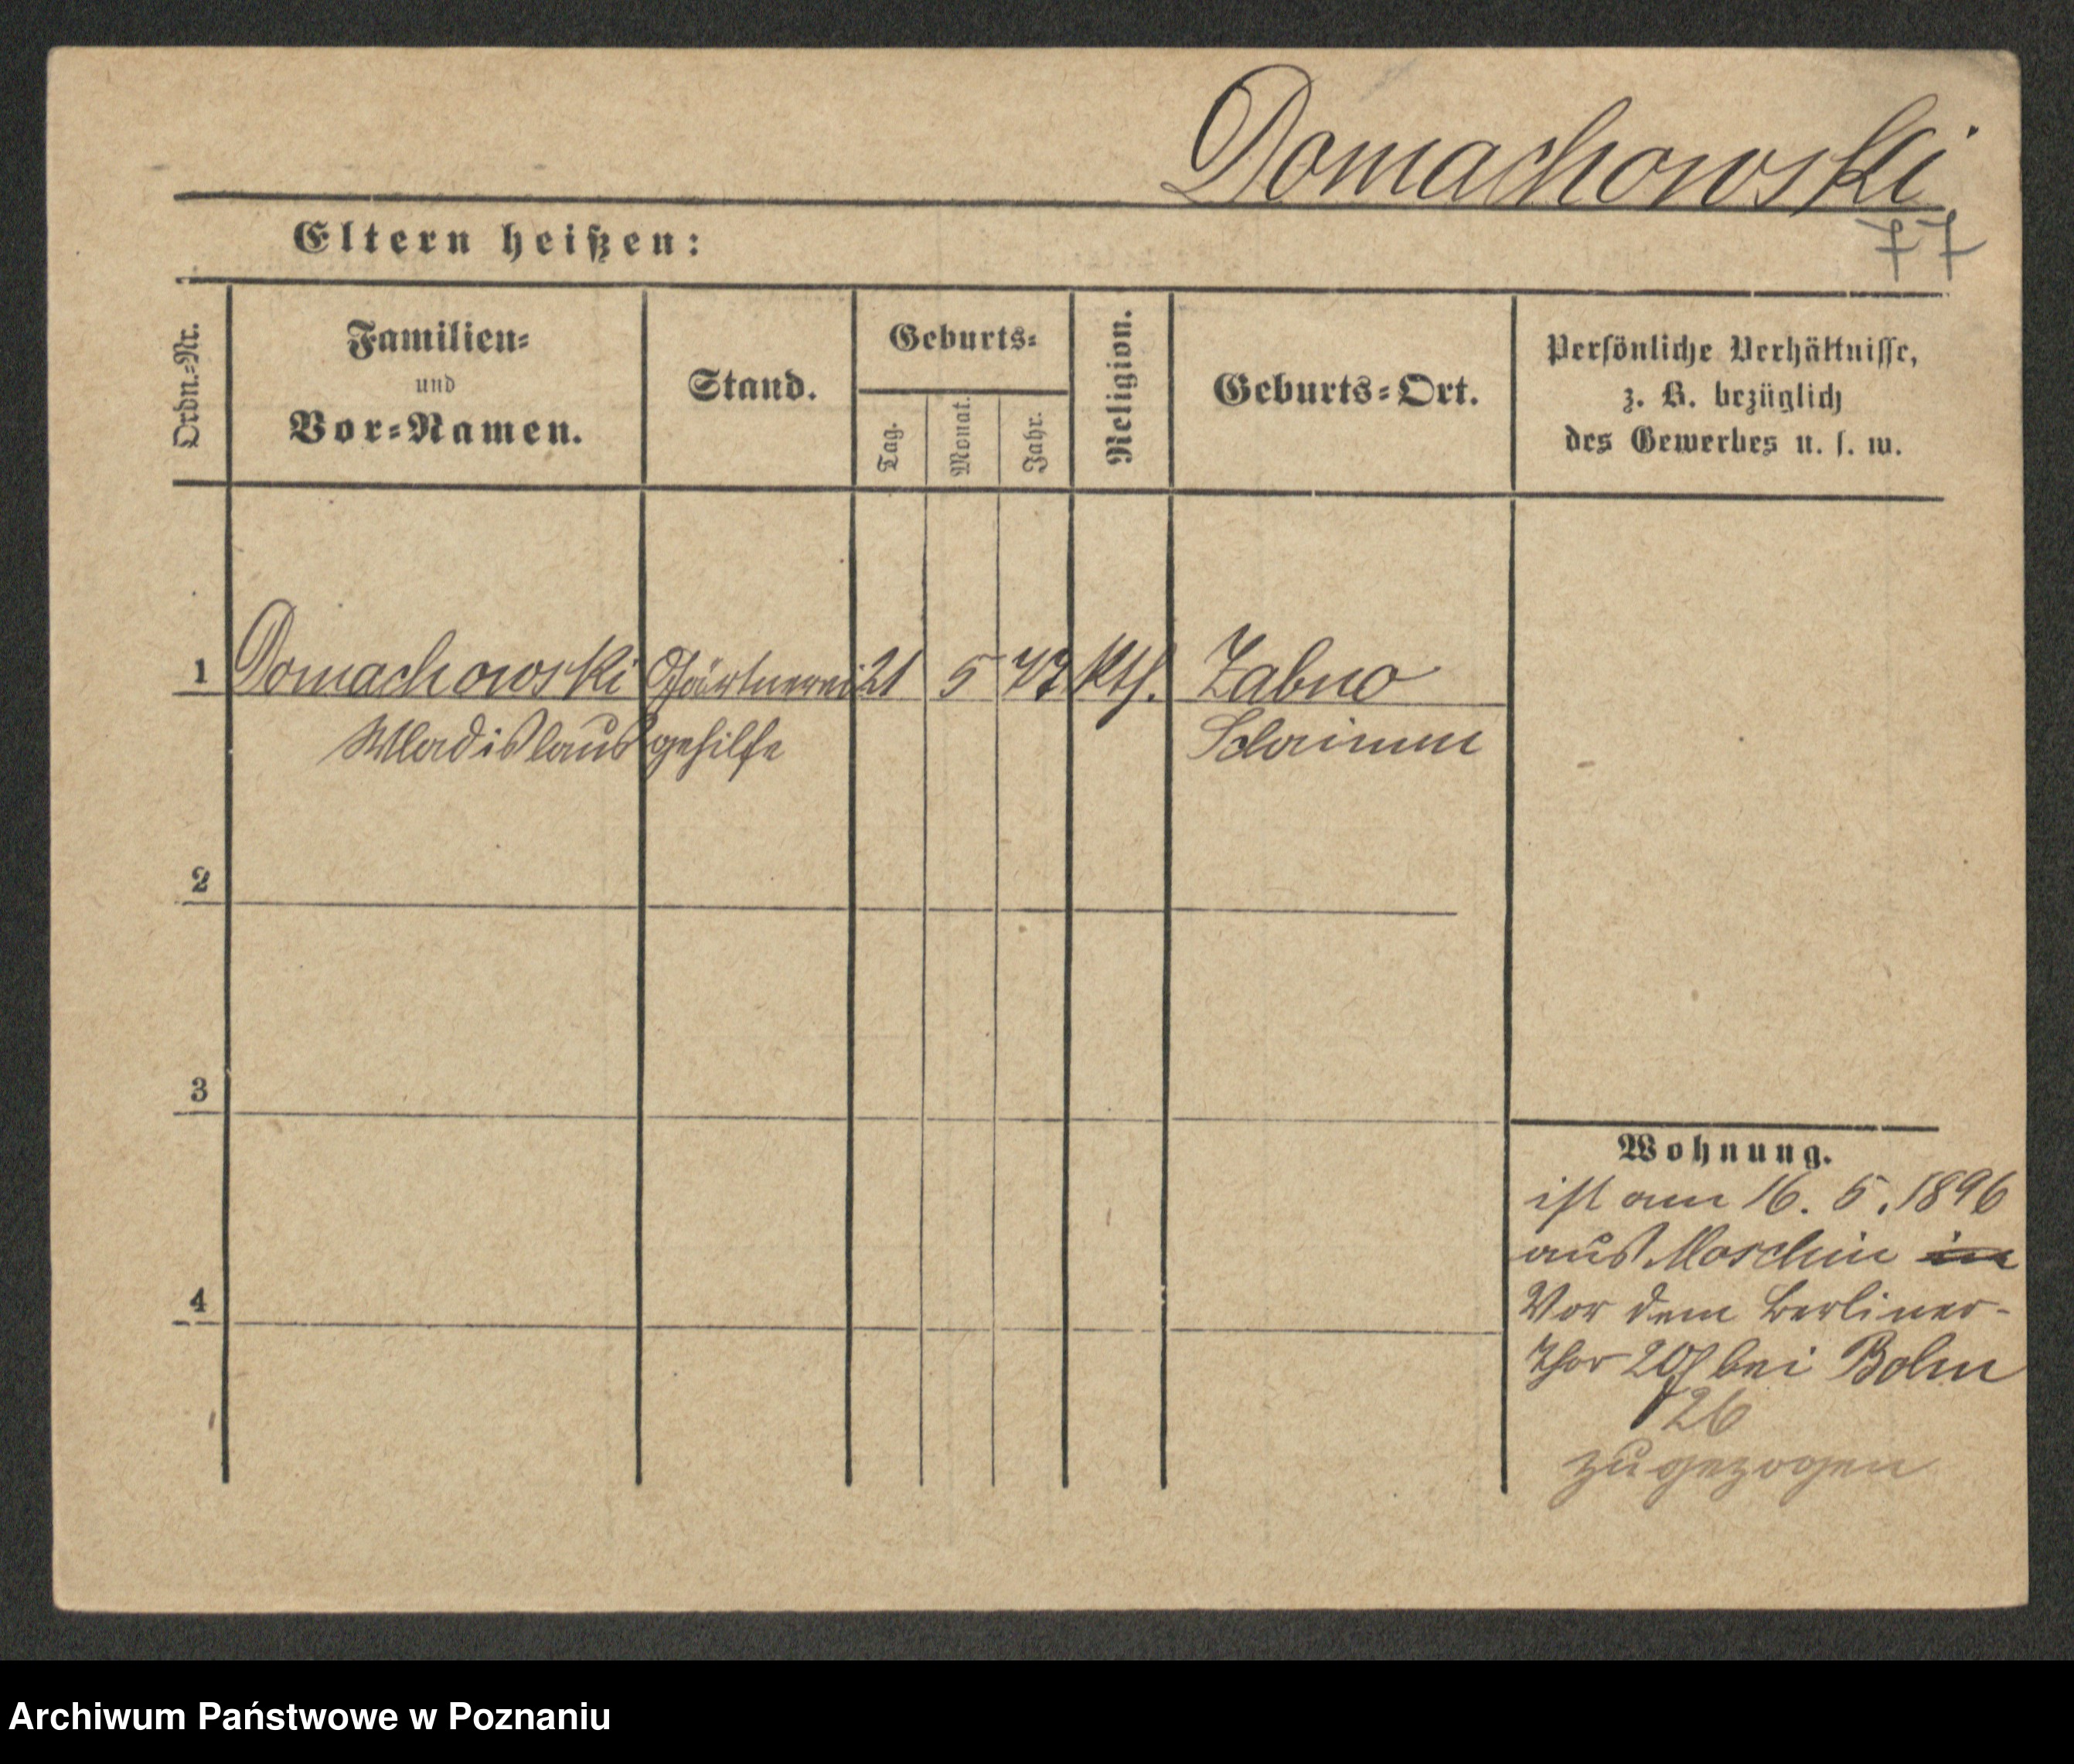 Domachowski
77
Eltern heißen:
Ordn.=Nr.
Familien=
und
Vor=Namen.
Stand.
Geburts=
Tag.
Monat.
Jahr.
Religion.
Geburts=Ort.
Persönliche Verhältnisse,
z. B. bezüglich
des Gewerbes u. s. w.
1 Domachowski Gärtnerei 21 5 77 kth. Zabno
Wladislaus gehilfe Schrimm
2
3
4
Wohnung.
ist am 16. 5. 1896
aus Moschin in
Vor dem Berliner-
Thor bei Bohn
26
zugezogen
Archiwum Państwowe w Poznaniu